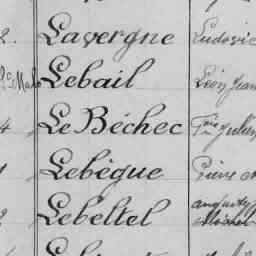 2. Lavergne Ludovic
St Malo Lebail Léon Jean
4 Le Béchec Frs Julien
1 Lebègue Pierre
2 Lebeltel Auguste